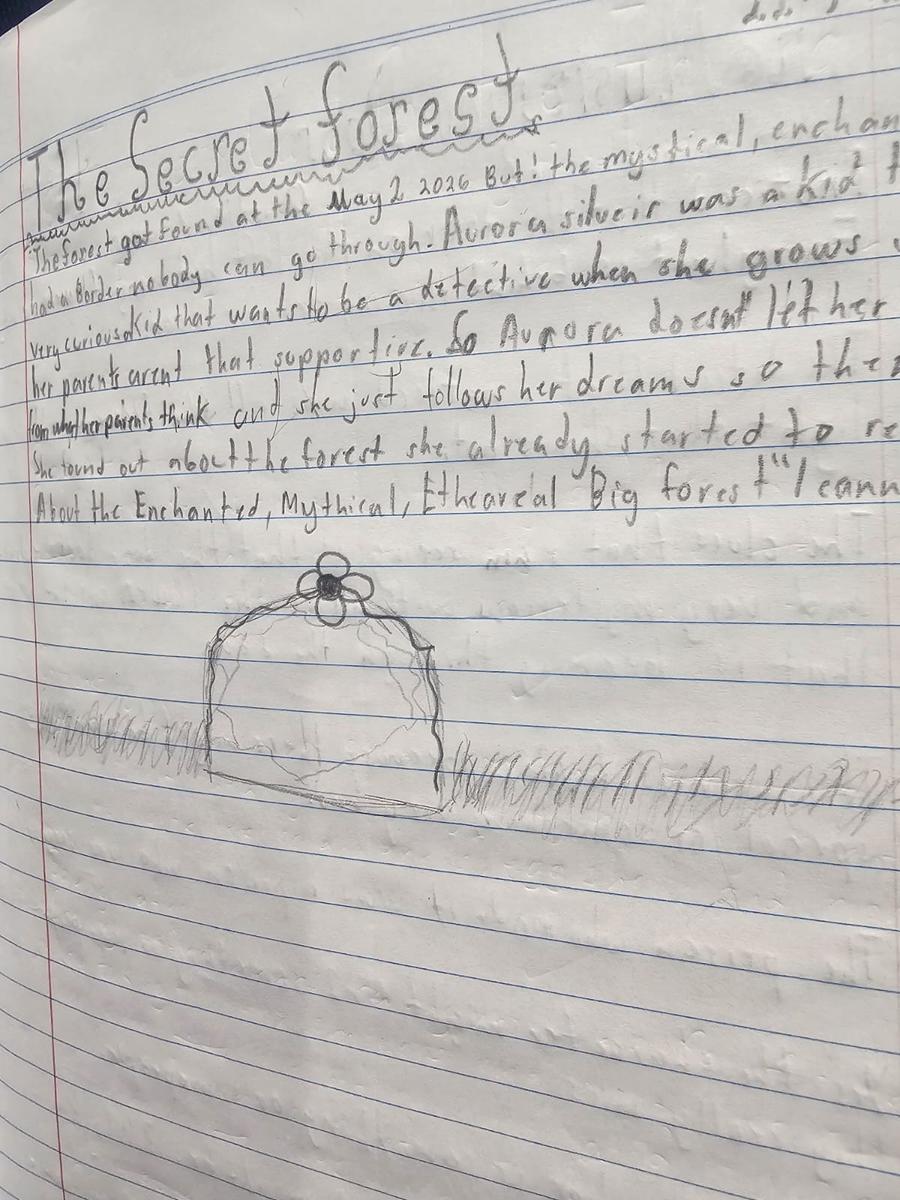 The Secret forest
The forest got found at the May 2 2026 But! the mystical, enchan
had a Border nobody can go through. Aurora silveir was a kid
very curious kid that wants to be a detective when she grows
her parents arent that supportive. So Aurora doesnt let her
from what her parents think and she just follows her dreams so the
She found out about the forest she already started to re
About the Enchanted, Mythical, Etheareal Big forest "I cann